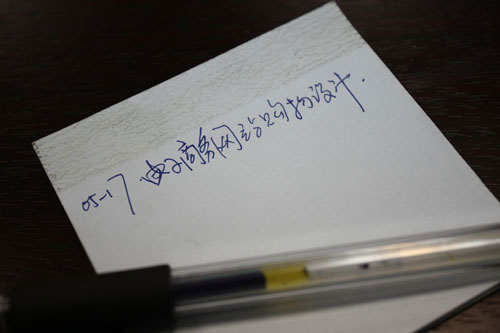 05-17 电子商务网站购物设计.